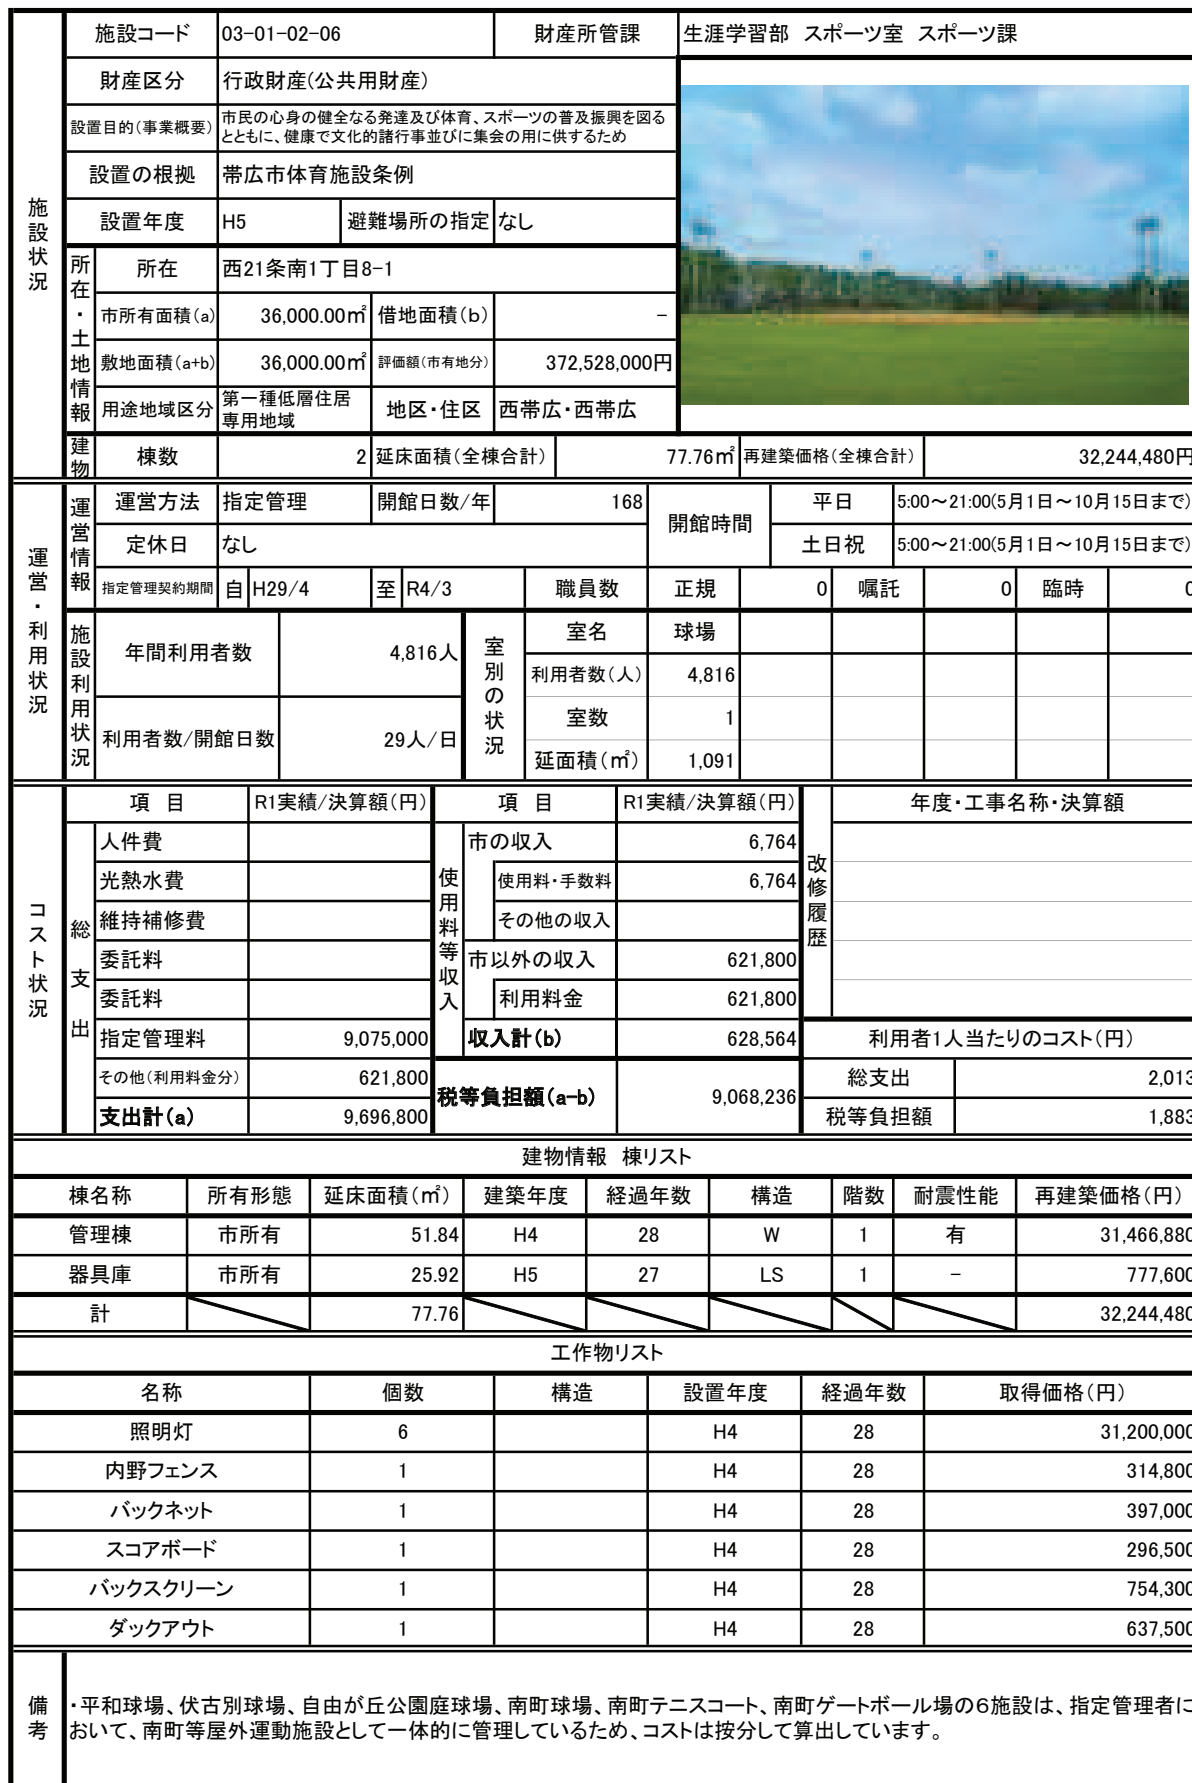 施設コード 03-01-02-06 財産所管課 生涯学習部 スポーツ室 スポーツ課
財産区分 行政財産(公共用財産)
設置目的(事業概要) 市民の心身の健全なる発達及び体育、スポーツの普及振興を図る
とともに、健康で文化的諸行事並びに集会の用に供するため
設置の根拠 帯広市体育施設条例
設置年度 H5 避難場所の指定 なし
施設状況
所在・土地情報
所在 西21条南1丁目8-1
市所有面積(a) 36,000.00㎡ 借地面積(b) -
敷地面積(a+b) 36,000.00㎡ 評価額(市有地分) 372,528,000円
用途地域区分 第一種低層住居
専用地域 地区・住区 西帯広・西帯広
建物 棟数 2 延床面積(全棟合計) 77.76㎡ 再建築価格(全棟合計) 32,244,480円
運営・利用状況
運営情報
運営方法 指定管理 開館日数/年 168 開館時間 平日 5:00~21:00(5月1日~10月15日まで)
定休日 なし 土日祝 5:00~21:00(5月1日~10月15日まで)
指定管理契約期間 自 H29/4 至 R4/3 職員数 正規 0 嘱託 0 臨時 0
施設利用状況
年間利用者数 4,816人
利用者数/開館日数 29人/日
室別の状況
室名 球場
利用者数(人) 4,816
室数 1
延面積(㎡) 1,091
コスト状況
項 目 R1実績/決算額(円) 項 目 R1実績/決算額(円) 年度・工事名称・決算額
総支出 使用料等収入 改修履歴
人件費 市の収入 6,764
光熱水費 使用料・手数料 6,764
維持補修費 その他の収入
委託料 市以外の収入 621,800
委託料 利用料金 621,800
指定管理料 9,075,000 収入計(b) 628,564 利用者1人当たりのコスト(円)
その他(利用料金分) 621,800 税等負担額(a-b) 9,068,236 総支出 2,013
支出計(a) 9,696,800 税等負担額 1,883
建物情報 棟リスト
棟名称 所有形態 延床面積(㎡) 建築年度 経過年数 構造 階数 耐震性能 再建築価格(円)
管理棟 市所有 51.84 H4 28 W 1 有 31,466,880
器具庫 市所有 25.92 H5 27 LS 1 - 777,600
計 77.76 32,244,480
工作物リスト
名称 個数 構造 設置年度 経過年数 取得価格(円)
照明灯 6 H4 28 31,200,000
内野フェンス 1 H4 28 314,800
バックネット 1 H4 28 397,000
スコアボード 1 H4 28 296,500
バックスクリーン 1 H4 28 754,300
ダックアウト 1 H4 28 637,500
備考
・平和球場、伏古別球場、自由が丘公園庭球場、南町球場、南町テニスコート、南町ゲートボール場の6施設は、指定管理者に
おいて、南町等屋外運動施設として一体的に管理しているため、コストは按分して算出しています。